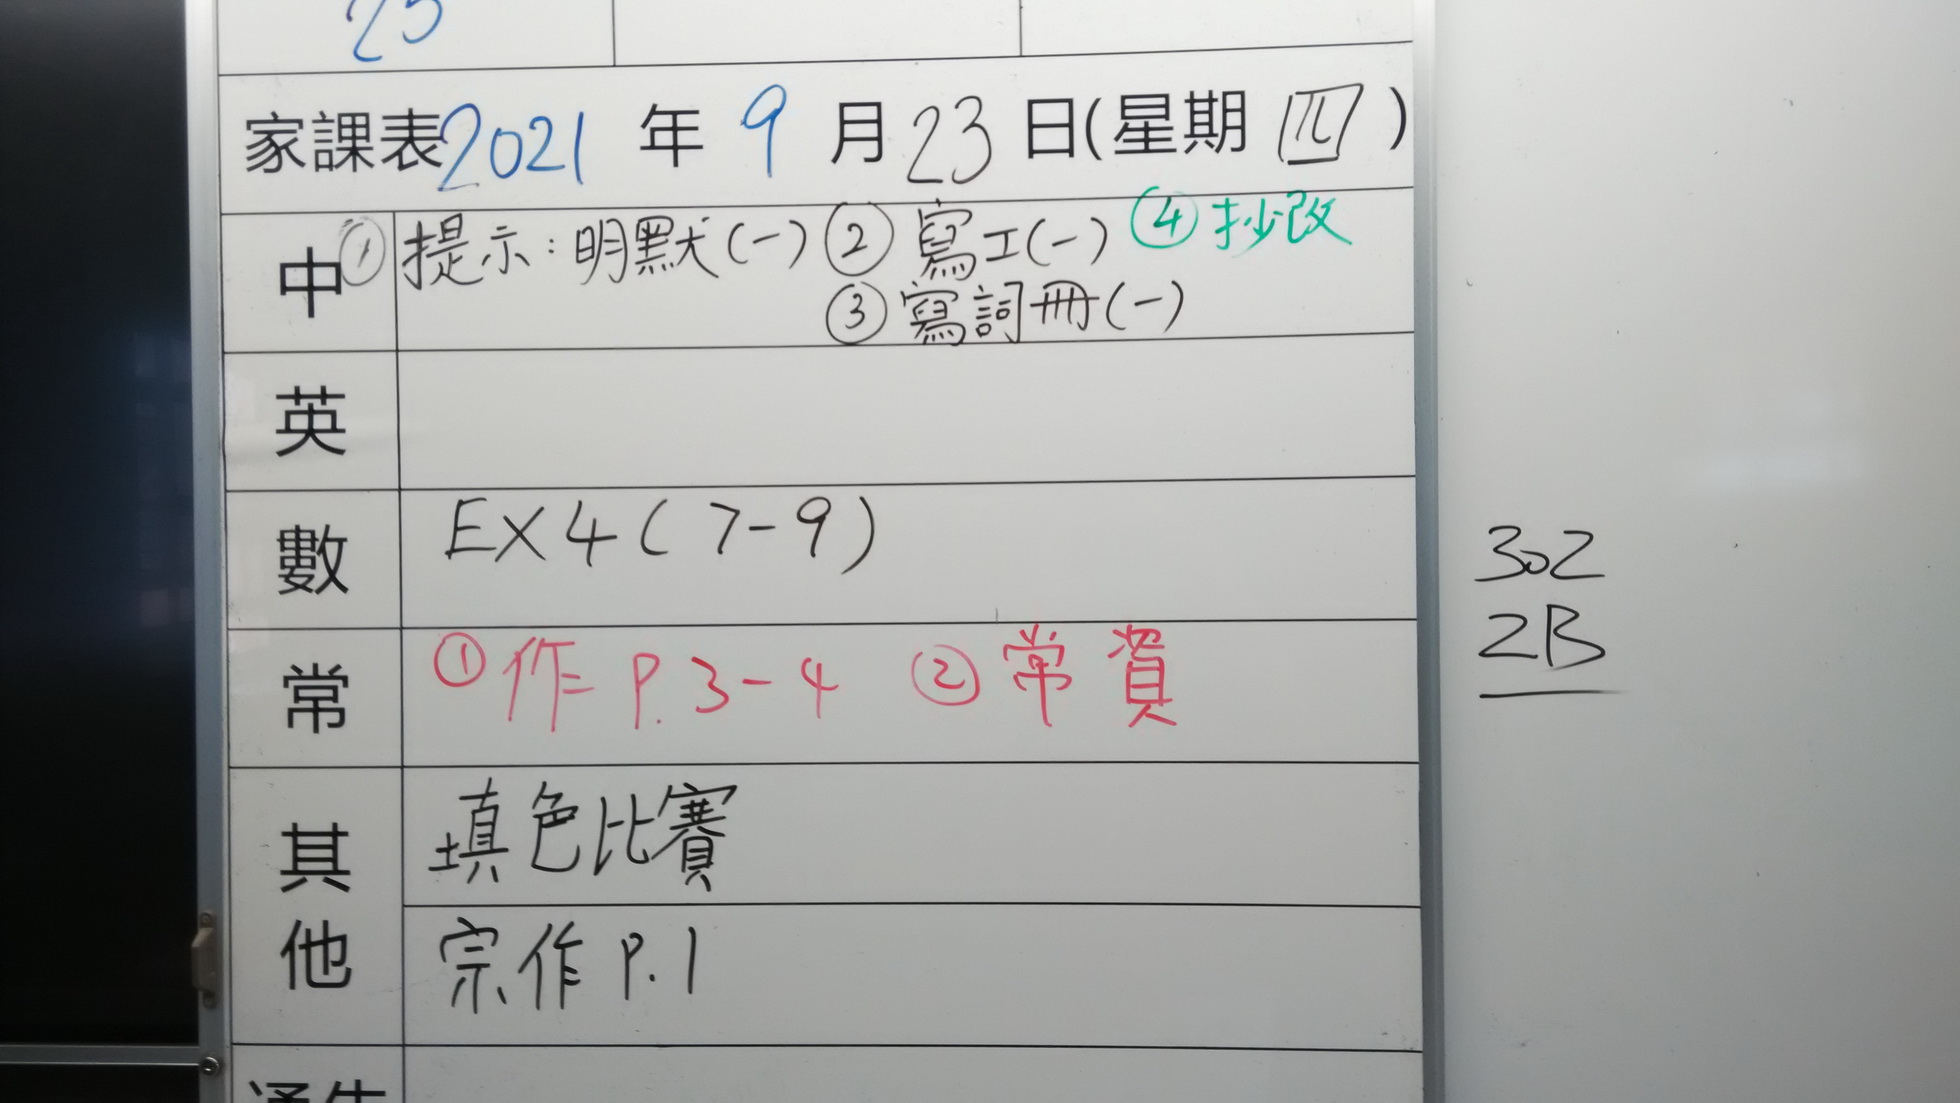 25
家課表2021年9月23日(星期四)
中 ①提示：明默(一) ②寫工(一) ④抄改
③寫詞冊(一)
英
數 EX4(7-9)
常 ①作 P.3-4 ②常資
其他 填色比賽
宗作 P.1
通告
302
2B